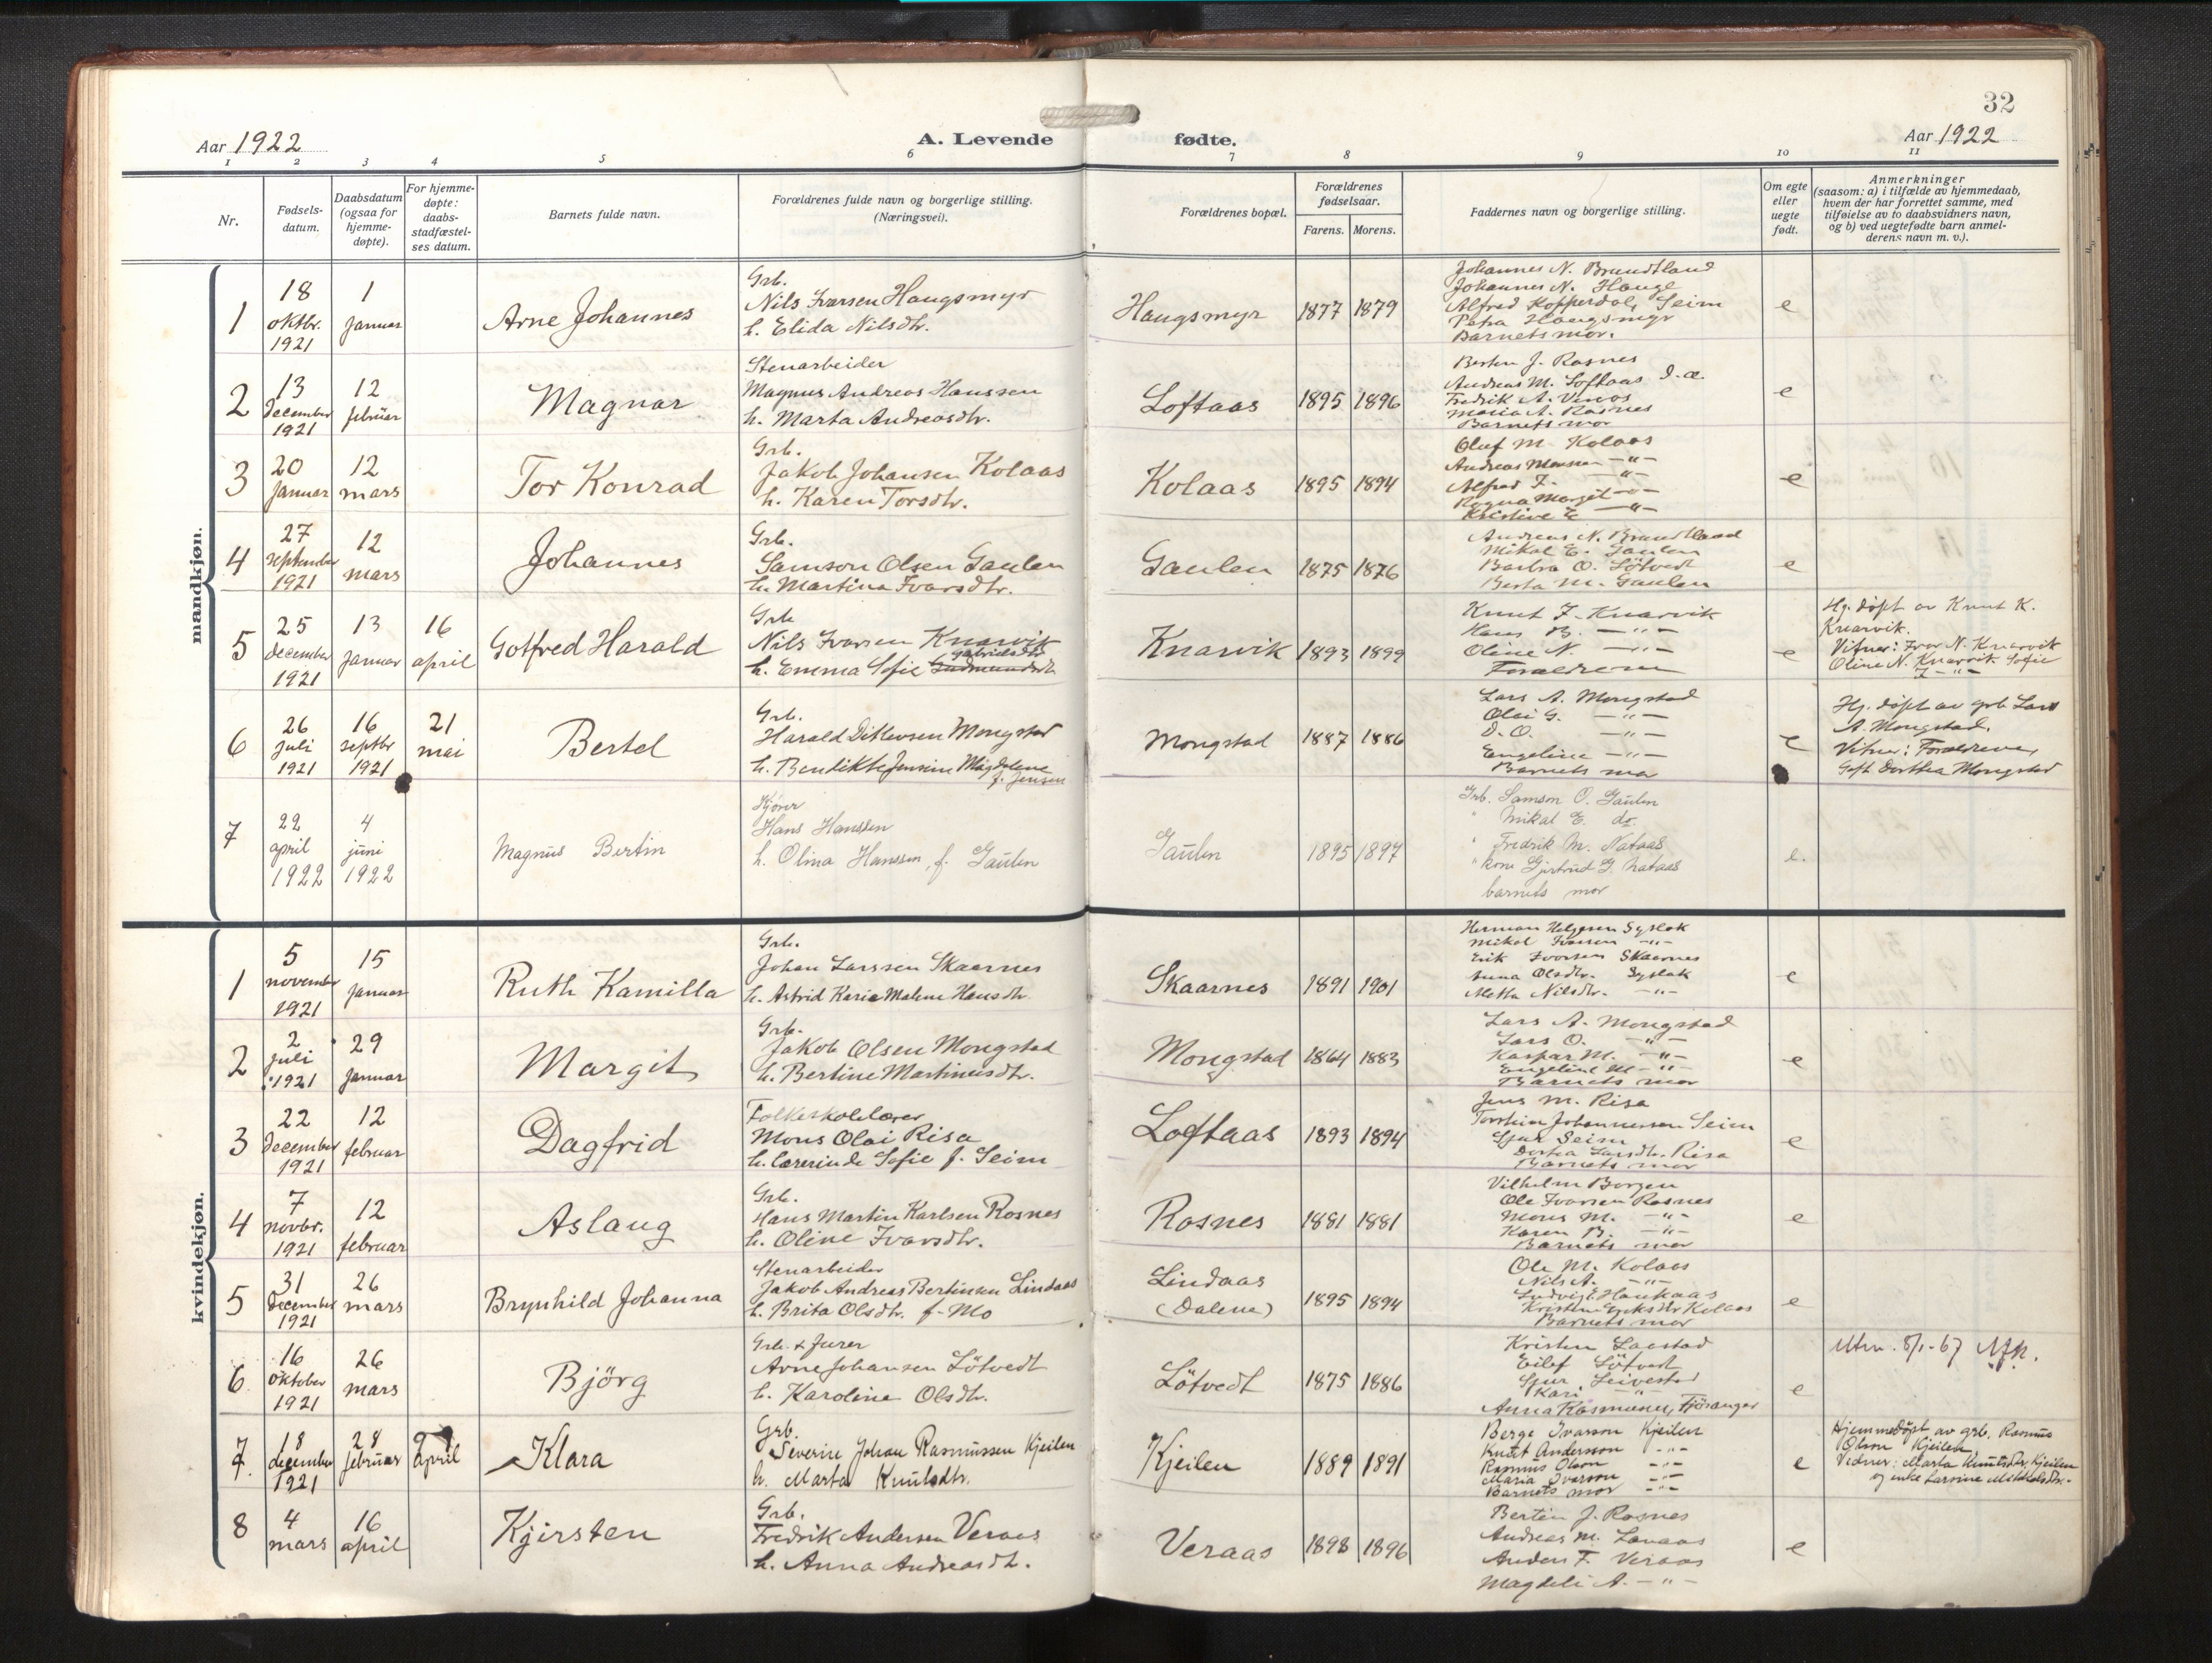 32
Aar 1922
A. Levende fødte.
Aar 1922
1 2 3 4 5 6 7 8 9 10 11
Nr.
Fødsels-
datum.
Daabsdatum
(ogsaa for
hjemme-
døpte).
For hjemme-
døpte:
daabs-
stadfæstel-
ses datum.
Barnets fulde navn.
Forældrenes fulde navn og borgerlige stilling.
(Næringsvei).
Forældrenes bopæl.
Forældrenes
fødselsaar.
Farens. Morens.
Faddernes navn og borgerlige stilling.
Om egte
eller
uegte
født.
Anmerkninger
(saasom: a) i tilfælde av hjemmedaab,
hvem der har forrettet samme, med
tilføielse av to daabsvidners navn,
og b) ved uegtefødte barn anmel-
derens navn m. v.).
mandkjøn.
1
18
oktbr.
1921
1
januar
Arne Johannes
Grb.
Nils Ivarsen Haugsmyr
h. Elida Nilsdtr.
Haugsmyr
1877
1879
Johannes N. Brundtland
Johannes N. Hauge
Alfred Kopperdal, Seim
Petra Haugsmyr
Barnets mor.
e
2
13
december
1921
12
februar
Magnar
Stenarbeider
Magnus Andreas Hanssen
h. Marta Andreasdtr.
Loftaas
1895
1896
Berten J. Rosnes
Andreas M. Loftaas d.æ.
Fredrik A.
Maria A. Rosnes
Barnets mor
e
3
20
januar
12
mars
Tor Konrad
Grb.
Jakob Johansen Kolaas
h. Karen Torsdtr.
Kolaas
1895
1894
Oluf M. Kolaas
Andreas Monsen —"—
Alfred J. —"—
Ragna Margit —"—
Kristine E —"—
e
4
27
september
1921
12
mars
Johannes
Grb.
Samson Olsen Gaulen
h. Martina Ivarsdtr.
Gaulen
1875
1876
Andreas N. Brundtland
Mikal E. Gaulen
Barbra O. Lötvedt
Berta M. Gaulen
e
5
25
december
1921
13
januar
16
april
Gotfred Harald
Grb
Nils Ivarsen Knarvik
Gabrielsdtr
h. Emma Sofie Gudmundsdt.
Knarvik
1893
1899
Knut J. Knarvik
Hans —"—
Oline N. —"—
Forældrene
e
Hj. døpt av Knut K.
Knarvik.
Vitner: Ivar N. Knarvik
Oline N. Knarvik. Sofie
J —"—
6
26
juli
1921
16
septbr
1921
21
mai
Bertel
Grb.
Harald Ditlevsen Mongstad
h. Bendikte Jensine Magdalene
f. Jensen
Mongstad
1887
1886
Lars A. Mongstad
Olai G. —"—
D. O. —"—
Engeline —"—
Barnets mor
e
Hj. døpt av grb Lars
A. Mongstad.
Vitner: Forældrene,
Gift Dorthea Mongstad
7
22
april
1922
4
juni
1922
Magnus Bertin
Kjører
Hans Hanssen
h. Olina Hanssen, f. Gaulen
Gaulen
1895
1897
Grb. Samson O. Gaulen
" Mikal E. do.
" Fredrik M. Nataas
" kone Gjertrud G. Nataas
barnets mor
e.
kvindekjøn.
1
5
november
1921
15
januar
Ruth Kamilla
Grb.
Johan Larssen Skaarnes
h. Astrid Karie Malene Hansdtr.
Skaarnes
1891
1901
Herman Helgesen Syslak
Mikal Ivarsen —"—
Erik Ivarsen Skaarnes
Anna Olsdtr. Syslak
Metta Nilsdtr. —"—
e
2
2
juli
1921
29
januar
Margit
Grb.
Jakob Olsen Mongstad
h. Bertine Martinusdtr.
Mongstad
1864
1883
Lars A. Mongstad
Lars O. —"—
Kaspar M. —"—
Engeline M —"—
Barnets mor
e
3
22
december
1921
12
februar
Dagfrid
Folkeskolelærer
Mons Olai Risa
h. lærerinde Sofie f. Seim
Loftaas
1893
1894
Jens M. Risa
Torstein Johannessen Seim
Sjur Seim
Dortea Larsdtr. Risa
Barnets mor
e
4
7
novbr.
1921
12
februar
Aslaug
Grb.
Hans Martin Karlsen Rosnes
h. Oline Ivarsdtr.
Rosnes
1881
1881
Vilhelm Borgen
Ole Ivarsen Rosnes
Mons M. —"—
Karen B. —"—
Barnets mor
e
5
31
december
1921
26
mars
Brynhild Johanna
Stenarbeider
Jakob Andreas Bertinsen Lindaas
h. Brita Olsdtr. f. Mo
Lindaas
(Dalene)
1895
1894
Ole M. Kolaas
Nils A. —"—
Ludvig E. Haukaas
Kristen Eriksdtr Kolaas
Barnets mor
e
6
16
oktober
1921
26
mars
Björg
Grb. & Jurer
Arne Johansen Lötvedt
h. Karoline Olsdtr.
Lötvedt
1875
1886
Kristen
Eilef Lötvedt
Sjur Seivestad
Kari —"—
Anna Rasmussen, Fjösanger
e
Utsn. 5/1-67
7.
18
december
1921
28
februar
9
april
Klara
Grb.
Severin Johan Rasmussen Kjeilen
h. Marta Knutsdtr.
Kjeilen
1889
1891
Berge Ivarson Kjeilen
Knut Anderson —"—
Rasmus Olson —"—
Maria Ivarson —"—
Barnets mor —"—
e
Hjemmedøpt av grb. Rasmus
Olson Kjeilen,
Vidner: Marta Knutsdtr. Kjeilen
og enke Larsine
8
4
mars
16
april
Kjersten
Grb.
Fredrik Andersen Veraas
h. Anna Andreasdtr.
Veraas
1898
1896
Bertin J. Rosnes
Andreas M.
Anders F. Veraas
Magdeli A. —"—
e